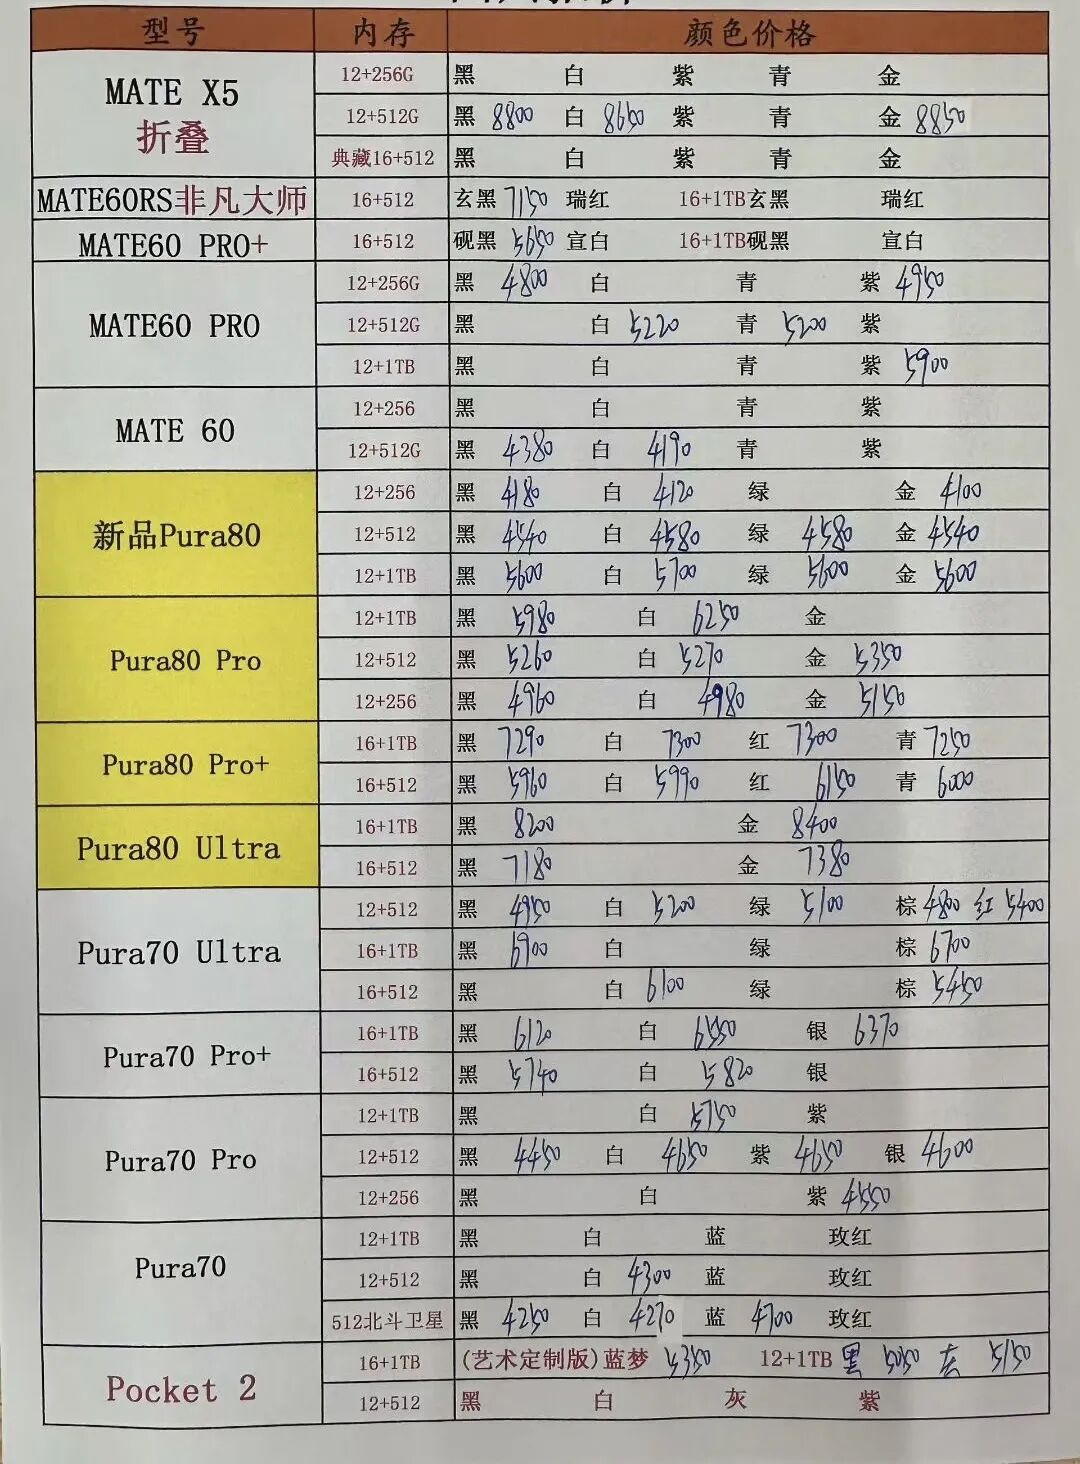 型号 内存 颜色价格
MATE X5 折叠
12+256G 黑 白 紫 青 金
12+512G 黑 8800 白 8650 紫 青 金 8850
典藏16+512 黑 白 紫 青 金
MATE60RS非凡大师 16+512 玄黑 7150 瑞红 16+1TB玄黑 瑞红
MATE60 PRO+ 16+512 砚黑 5650 宣白 16+1TB砚黑 宣白
MATE60 PRO
12+256G 黑 4800 白 青 紫 4950
12+512G 黑 白 5220 青 5200 紫
12+1TB 黑 白 青 紫 5900
MATE 60
12+256 黑 白 青 紫
12+512G 黑 4380 白 4190 青 紫
新品Pura80
12+256 黑 4180 白 4120 绿 金 4100
12+512 黑 4540 白 4580 绿 4580 金 4540
12+1TB 黑 5600 白 5700 绿 5600 金 5600
Pura80 Pro
12+1TB 黑 5980 白 6250 金
12+512 黑 5260 白 5270 金 5350
12+256 黑 4960 白 4980 金 5150
Pura80 Pro+
16+1TB 黑 7290 白 7300 红 7300 青 7250
16+512 黑 5960 白 5990 红 6150 青 6000
Pura80 Ultra
16+1TB 黑 8200 金 8400
16+512 黑 7180 金 7380
Pura70 Ultra
12+512 黑 4950 白 5200 绿 5100 棕 4800 红 5400
16+1TB 黑 6900 白 绿 棕 6700
16+512 黑 白 6100 绿 棕 5450
Pura70 Pro+
16+1TB 黑 6120 白 6550 银 6370
16+512 黑 5740 白 5820 银
Pura70 Pro
12+1TB 黑 白 5750 紫
12+512 黑 4450 白 4650 紫 4650 银 4600
12+256 黑 白 紫 4550
Pura70
12+1TB 黑 白 蓝 玫红
12+512 黑 白 4300 蓝 玫红
512北斗卫星 黑 4250 白 4270 蓝 4700 玫红
Pocket 2
16+1TB (艺术定制版)蓝梦 5350 12+1TB 黑 5050 灰 5150
12+512 黑 白 灰 紫